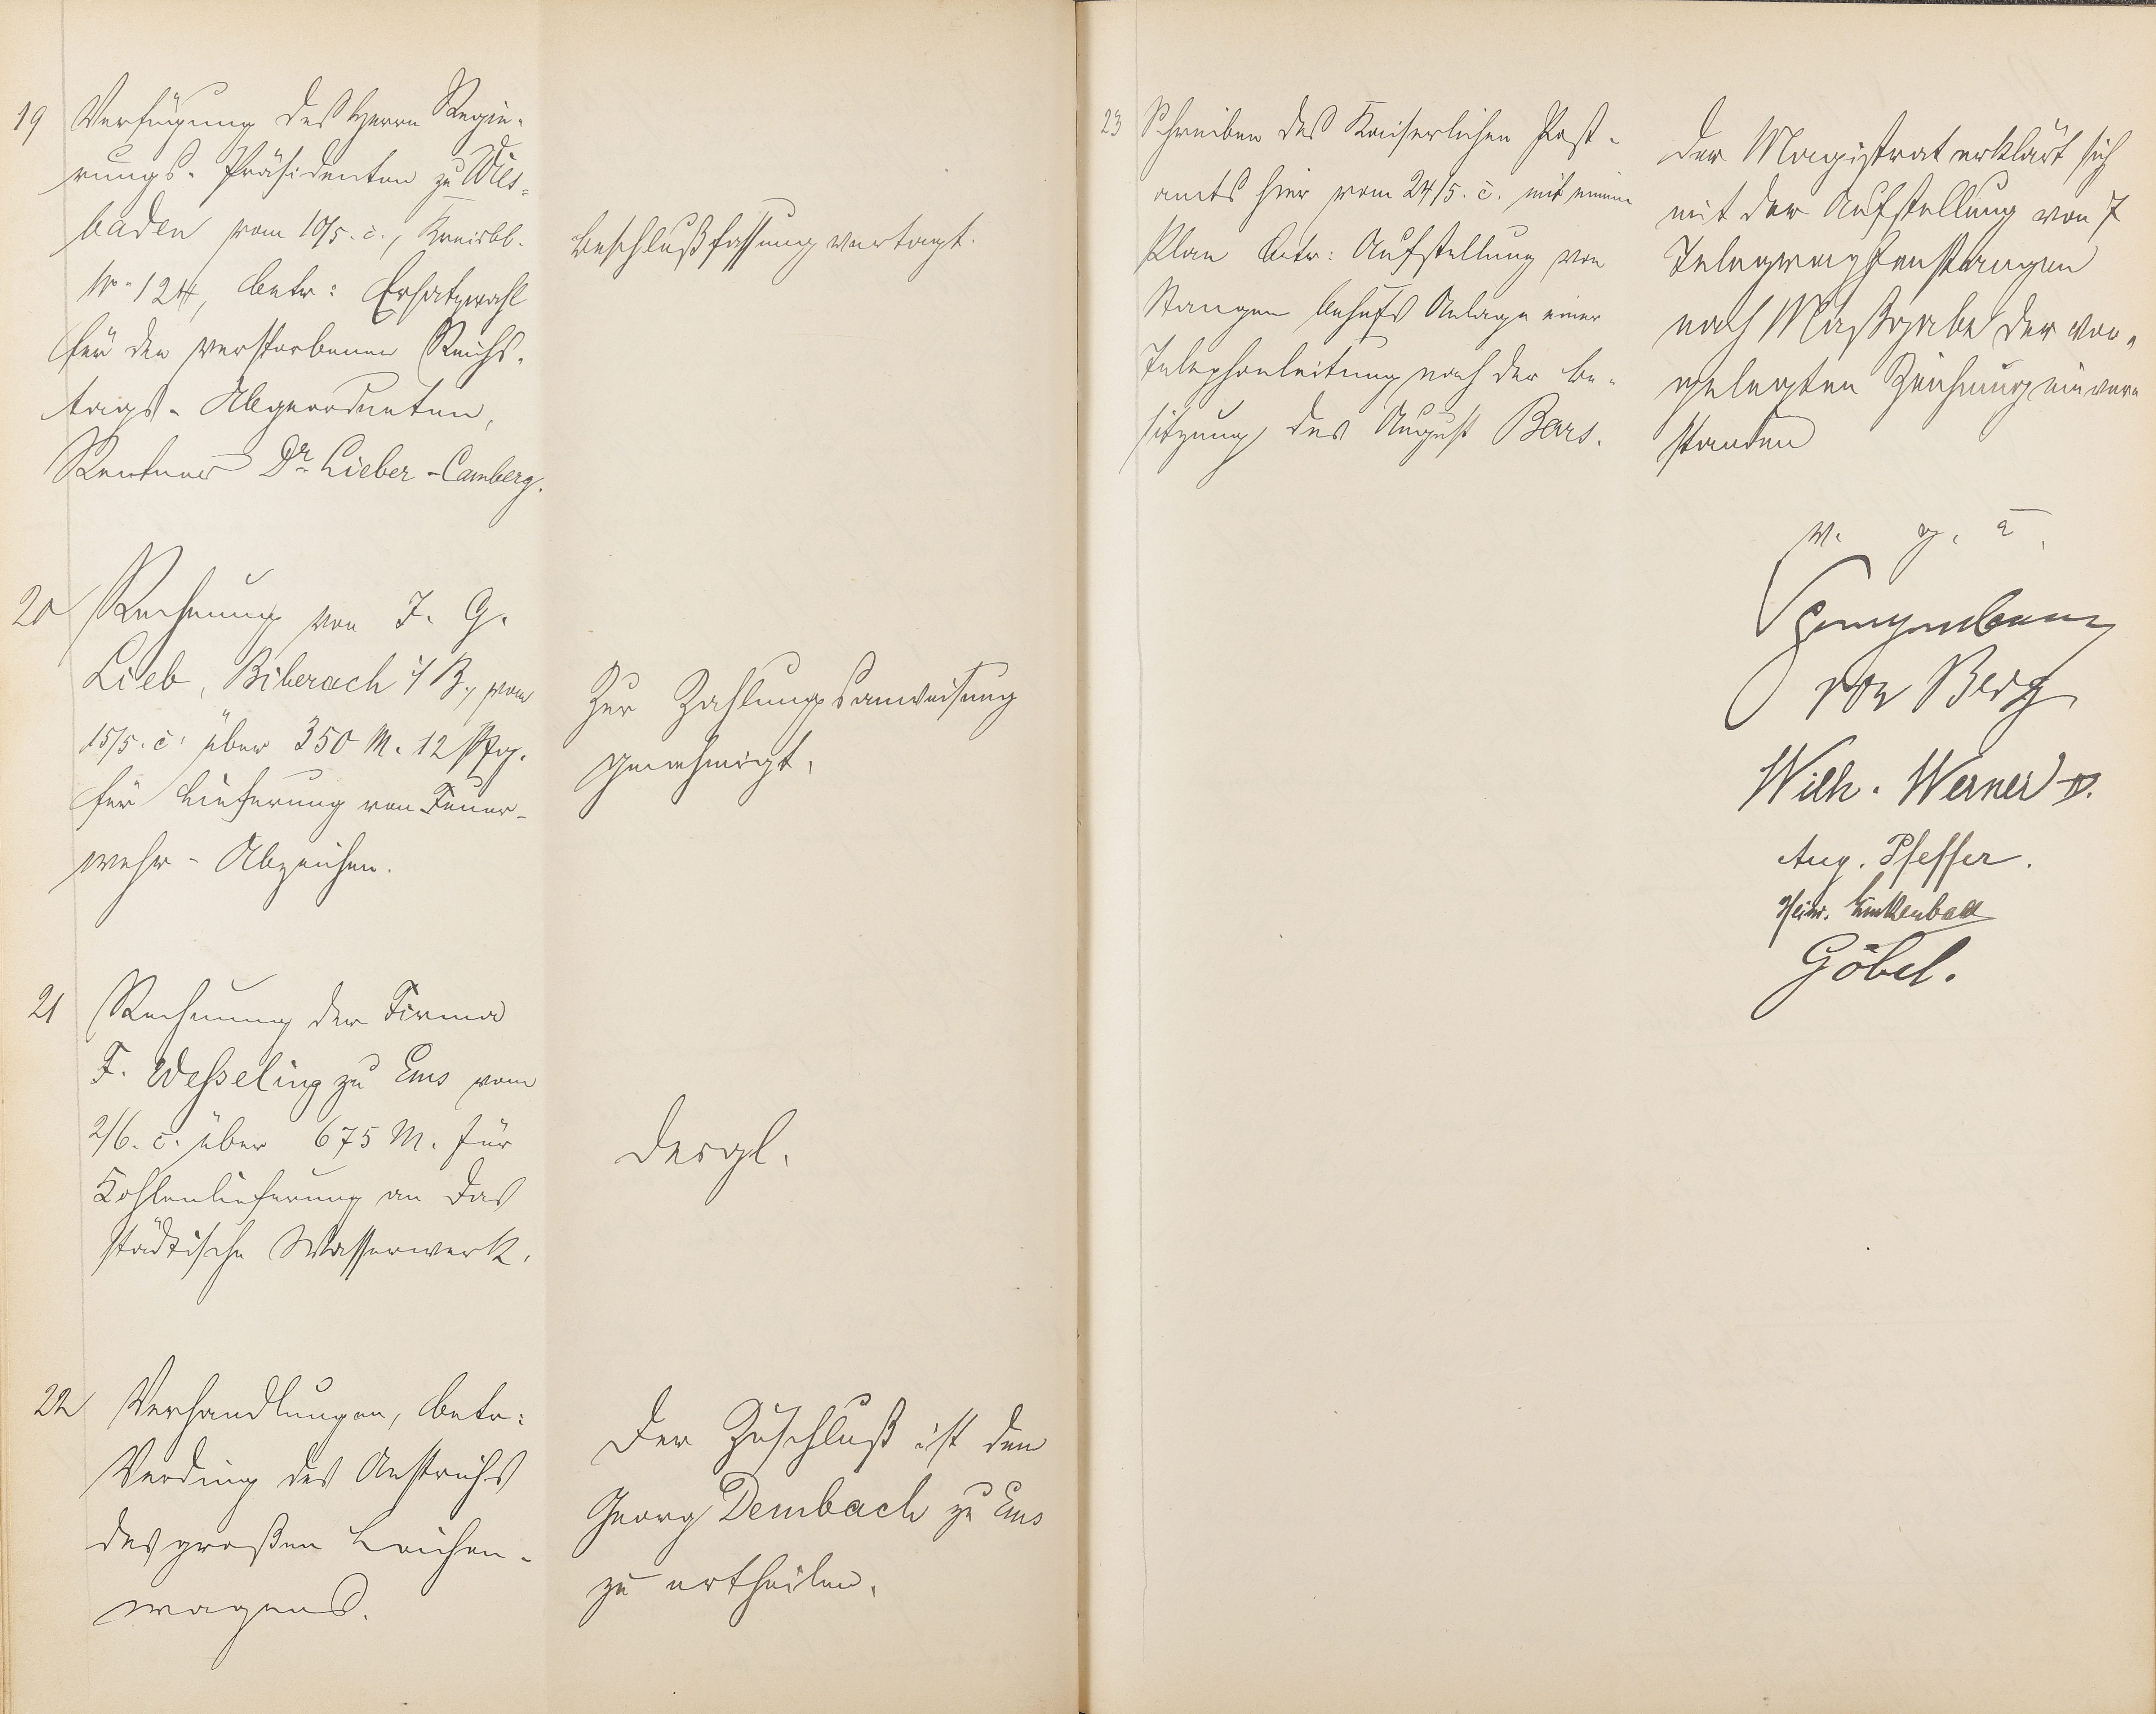 19 Verfügung des Herrn Regie-
rungs-Präsidenten zu Wies-
baden vom 10/5. c., Kreisbl.
No. 124, betr: Ersatzwahl
für den verstorbenen Reichs-
tags-Abgeordneten,
Rentner Dr. Lieber-Camberg.
Beschlußfassung vertagt.
20 Rechnung von J. G.
Lieb, Biberach i/B., vom
15/5. c. über 350 M. 12 Pfg.
für Lieferung von Feuer-
wehr-Abzeichen.
Zur Zahlungsanweisung
genehmigt.
21 Rechnung der Firma
F. Wesseling zu Ems vom
2/6. c. über 675 M. für
Kohlenlieferung an das
städtische Wasserwerk.
desgl.
22 Verhandlungen, betr:
Verding des Anstrichs
des großen Leichen-
wagens.
Der Zuschluß ist dem
Georg Dembach zu Ems
zu ertheilen.
23 Schreiben des Kaiserlichen Post-
amts hier vom 24/5. c. mit einem
Plan betr: Aufstellung von
Stangen behufs Anlage einer
Telephonleitung nach der Be-
sitzung des August Bars.
Der Magistrat erklärt sich
mit der Aufstellung von 7
Telegraphenstangen
nach Maßgabe der vor-
gelegten Zeichnung einver-
standen
v. g. u.
von Berg
Wilh. Werner IV.
Aug. Pfeffer.
Heinr. Linkenbach
Göbel.